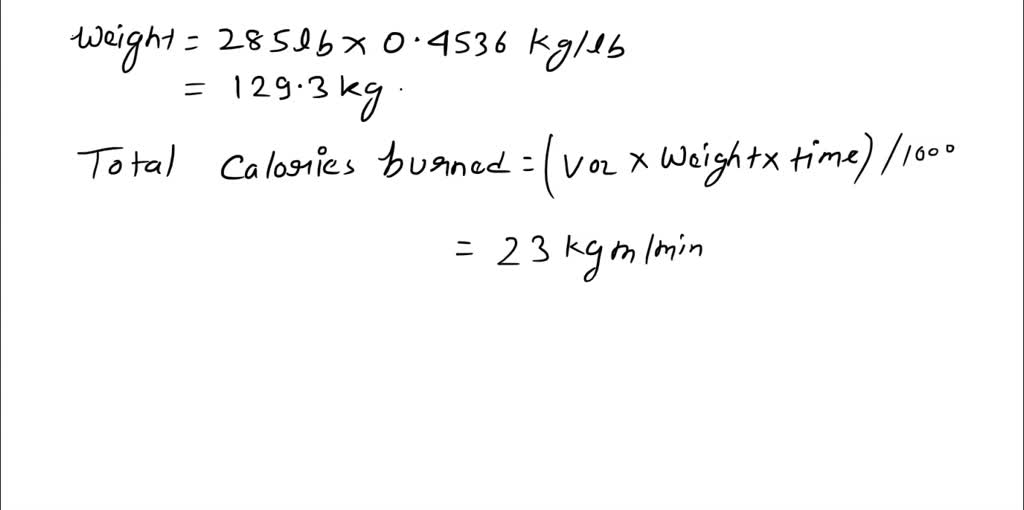 Weight = 285lb x 0.4536 kg/lb
= 129.3kg.
Total Calories burned = (Vo2 x Weight x time)/1000
= 23 kgm/min